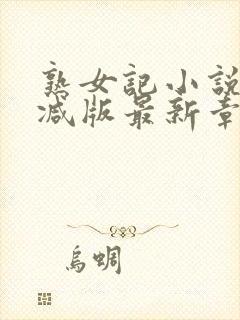 熟女記小説
减版最新章
烏蜩